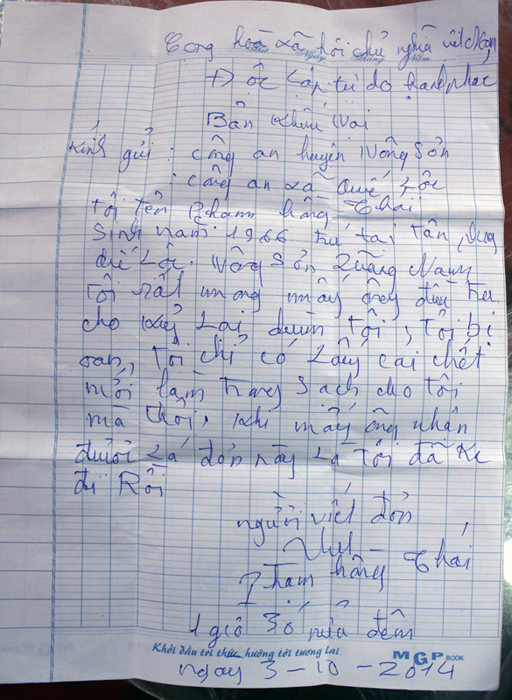 Cộng hoà xã hội chủ nghĩa việt Nam
Độc Lập tự do hạnh phúc
Bản khiếu Nại
Kính gửi : công an huyện Nông Sơn
: công an xã Quế Lộc
tôi tên Phạm hồng Thái
Sinh năm 1966 trú tại Tân
Quế Lộc. Nông Sơn Quảng Nam
Tôi rất mong mấy ông điều tra
cho kỹ Lại dùm tôi, Tôi bị
oan, Tôi chỉ có Lấy cái chết
mới làm trong Sạch cho tôi
mà thôi, khi mấy ông nhận
được Lá đơn này Là Tôi đã ra
đi Rồi
người viết đơn
Phạm hồng Thái
1 giờ 30 nửa đêm
Khởi đầu tri thức, hướng tới tương lai
MGP BOOK
ngày 3-10-2014